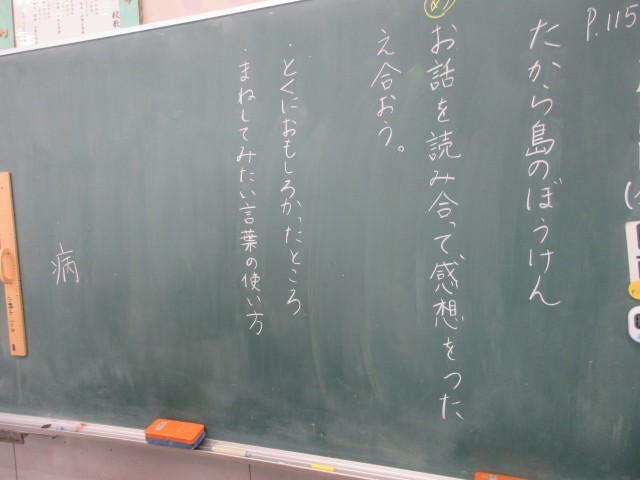 P.115
たから島のぼうけん
め
お話を読み合って、感想をつた
え合おう。
・とくにおもしろかったところ
・まねしてみたい言葉の使い方
病